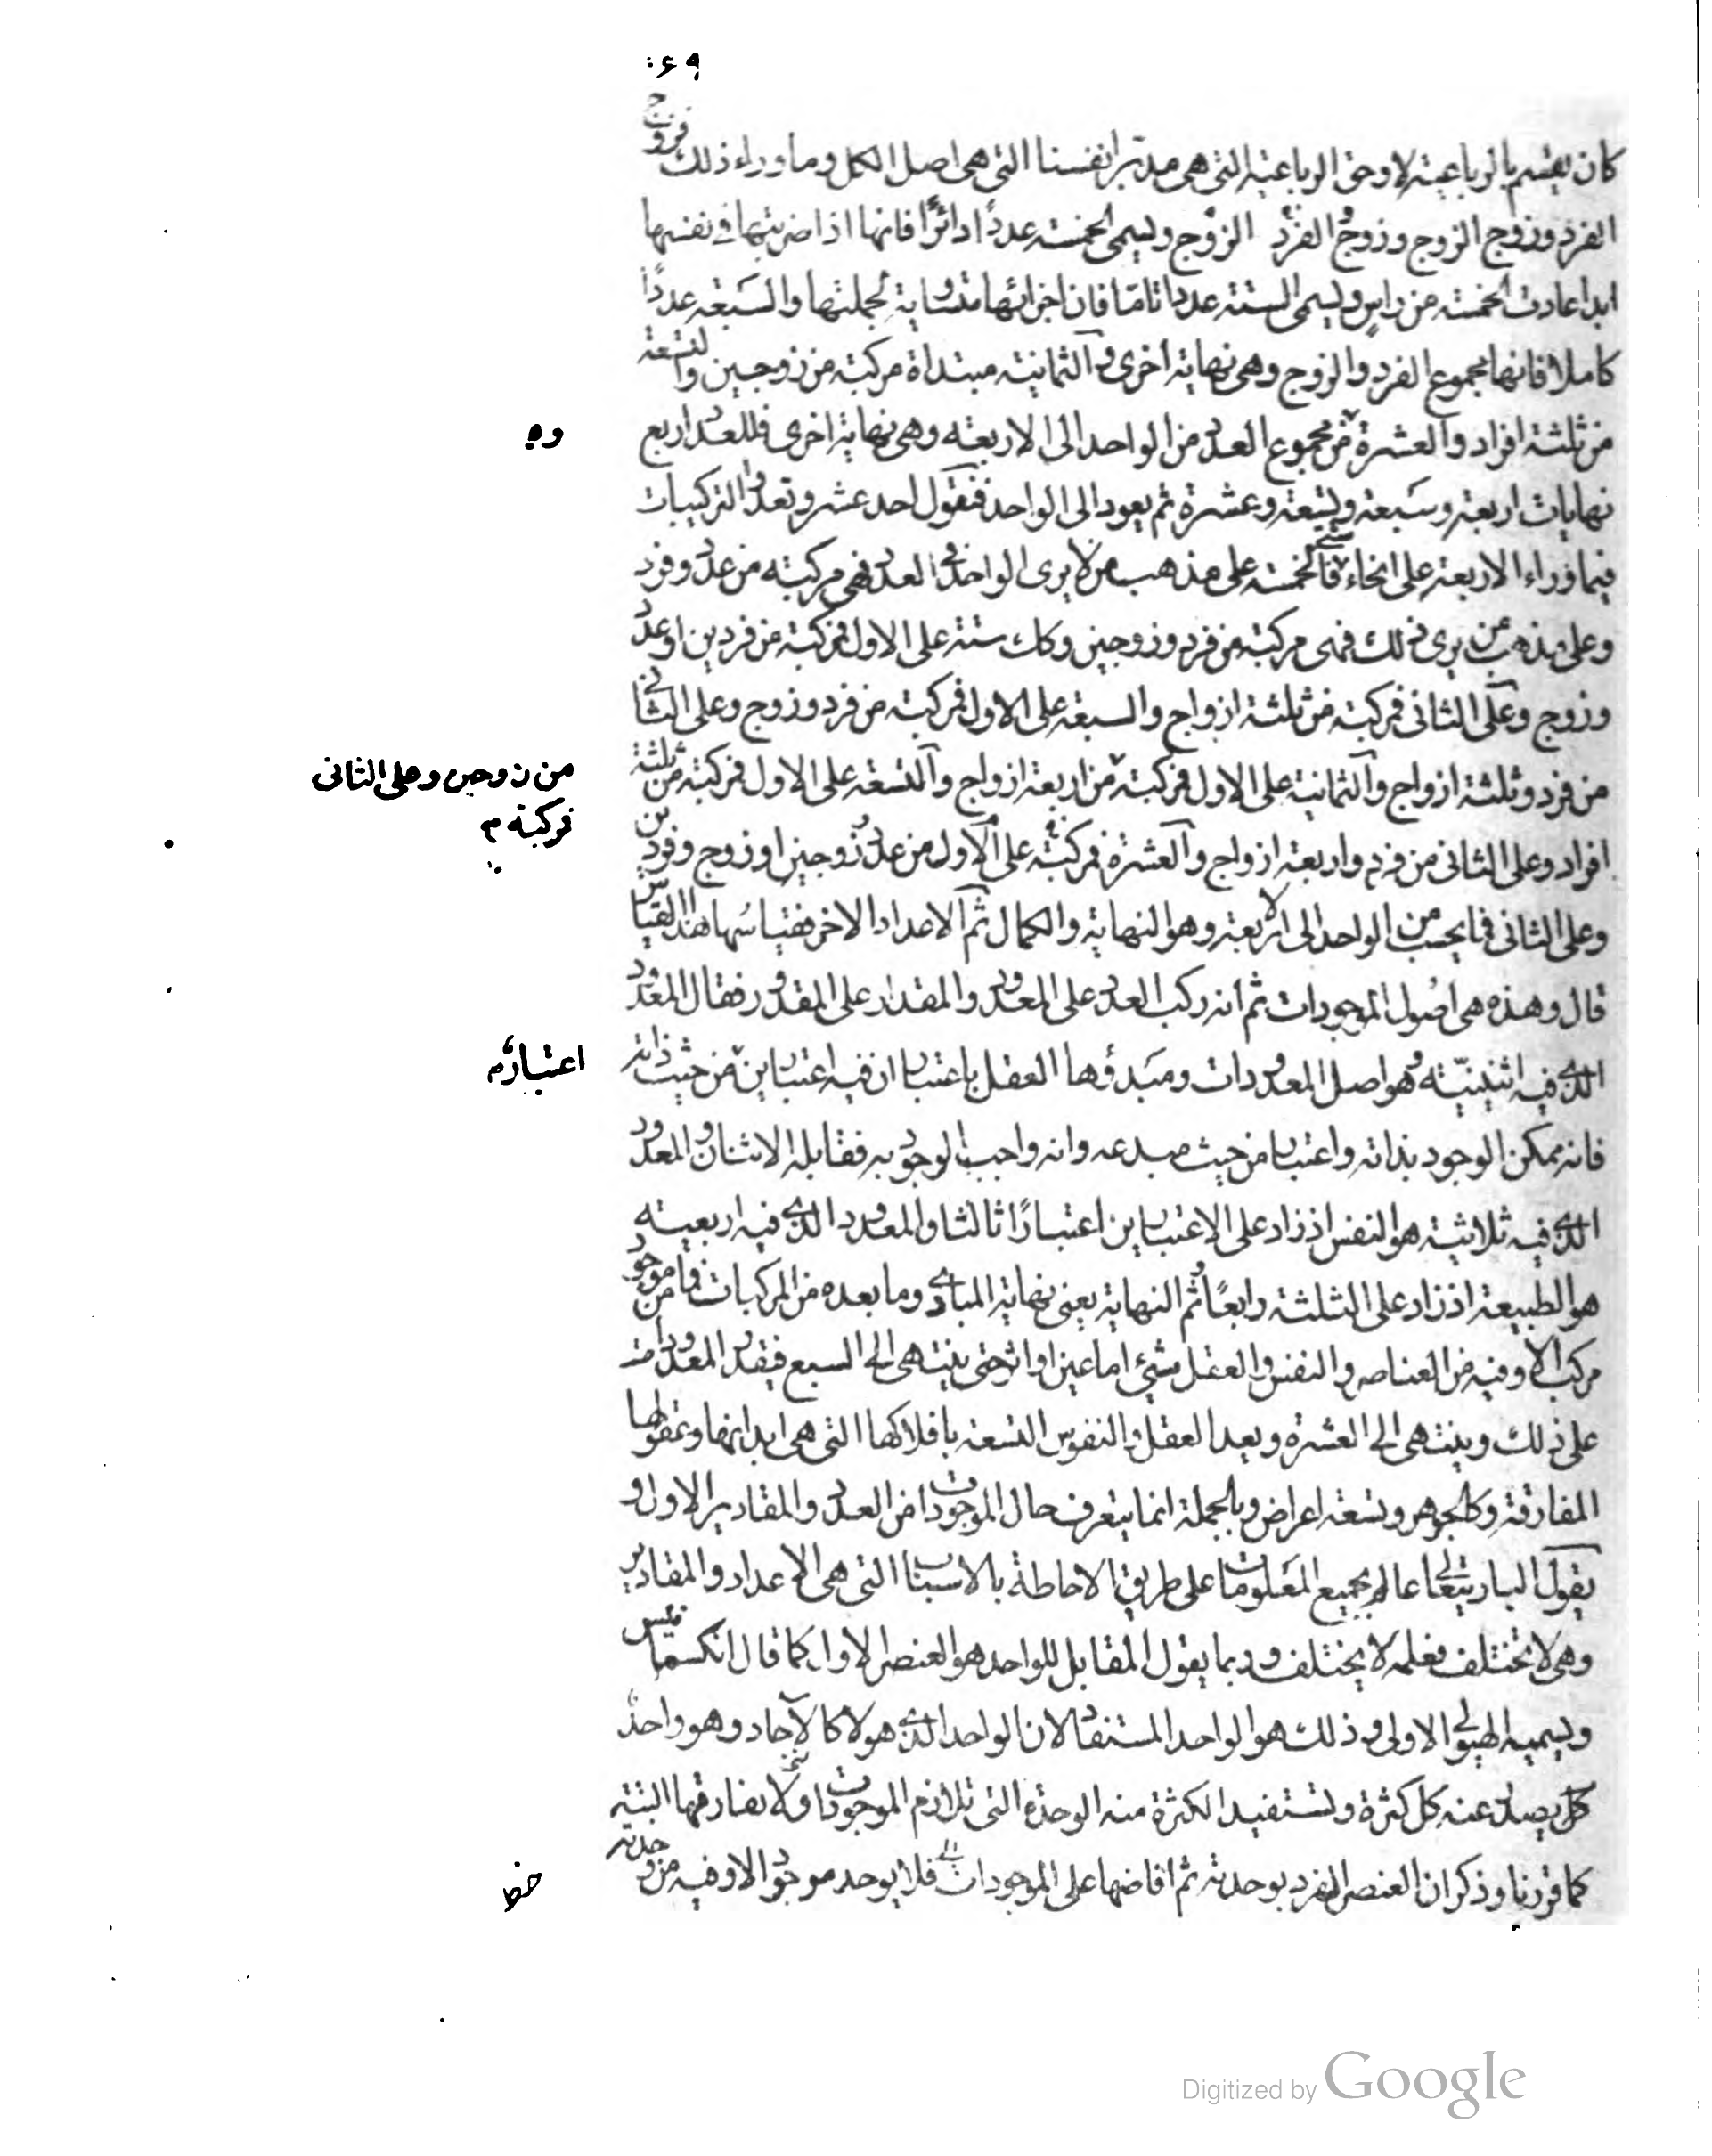 ٤٦٩
كان يقسم بالرباعية لا وحق الرباعية التي هي مدبر انفسنا التي هي اصل الكل وما وراء ذلك فزوج
الفرد وزوج الزوج وزوج الفرد الزوج ويسمى الخمسة عددًا دائرًا فانها اذا ضربتها في نفسها
ابدا عادت الخمسة من راس ويسمى الستة عددا تامّا فان اجزائها متساوية لجملتها والسبعة عددًا
كاملا فانها مجموع الفرد والزوج وهي نهاية اخرى والثمانية مبتداة مركبة من زوجين والتسعة
من ثلثة افراد والعشرة من مجموع العدد من الواحد الى الاربعة وهي نهاية اخرى فللعدد اربع
نهايات اربعة وسبعة وتسعة وعشرة ثم يعود الى الواحد فنقول احد عشر وتعدد التركيبات
فيما وراء الاربعة على انحاء شتى فالخمسة على مذهب من لا يرى الواحد في العدد فهي مركبة من عدد وفرد
وعلى مذهب من يرى ذلك فهي مركبة من فرد وزوجين وكك ستة على الاول فمركبة من فردين او عدد
وزوج وعلى الثاني فمركبة من ثلثة ازواج والسبعة على الاول فمركبة من فرد وزوج وعلى الثاني
من فرد وثلثة ازواج والثمانية على الاول فمركبة من اربعة ازواج والتسعة على الاول فمركبة من ثلثة
من زوجين وعلى الثاني
فمركبة م
افراد وعلى الثاني من فرد واربعة ازواج والعشرة فمركبة على الاول من عدد زوجين او زوج وفردين
وعلى الثاني فما يحسب من الواحد الى الاربعة وهو النهاية والكمال ثم الاعداد الاخر فقياسها هذا القياس
قال وهذه هي اصول الموجودات ثم انه ركب العدد على المعدود والمقدار على المقدور فقال المعدود
الذي فيه اثنينيّة وهو اصل المعدودات ومبدؤها العقل باعتبار ان فيه اعتبارين من حيث ذاته
اعتبار م
فانه ممكن الوجود بذاته واعتبار من حيث مبدعه وانه واجب الوجود به فقابله الاثنان والمعدود
الذي فيه ثلاثية هو النفس اذ زاد على الاعتبارين اعتبارًا ثالثا والمعدود الذي فيه اربعية
هو الطبيعة اذ زاد على الثلثة رابعًا وثم النهاية يعني نهاية المبادي وما بعده من المركبات فما من موجود
مركب الا وفيه من العناصر والنفس والعقل شئ اما عين او اثر حتى ينتهي الى السبع فيقدر المعدودات
على ذلك وينتهي الى العشرة ويعد العقل والنفوس التسعة بافلاكها التي هي ابدانها وعقولها
المفارقة وكالجوهر وتسعة اعراض وبالجملة انما يتعرف حال الموجودات من العدد والمقادير الاول و
يقول الباري تعالى عالم بجميع المعلومات على طريق الاحاطة بالاسباب التي هي الاعداد والمقادير
وهي لا تختلف فعلمه لا يختلف وربما يقول المقابل للواحد هو العنصر الاول كما قال انكسيمايس
ويسميه الهيولى الاولى وذلك هو الواحد المستفاد لان الواحد الذي هو لا كالاحاد وهو واحد
كل يصدر عنه كل كثرة وتستفيد الكثرة منه الوحدة التي تلازم الموجودات ولا تفارقها البتة
كما قررنا وذكر ان العنصر انفرد بوحدته ثم افاضها على الموجودات فلا يوجد موجود الا وفيه من وحدته